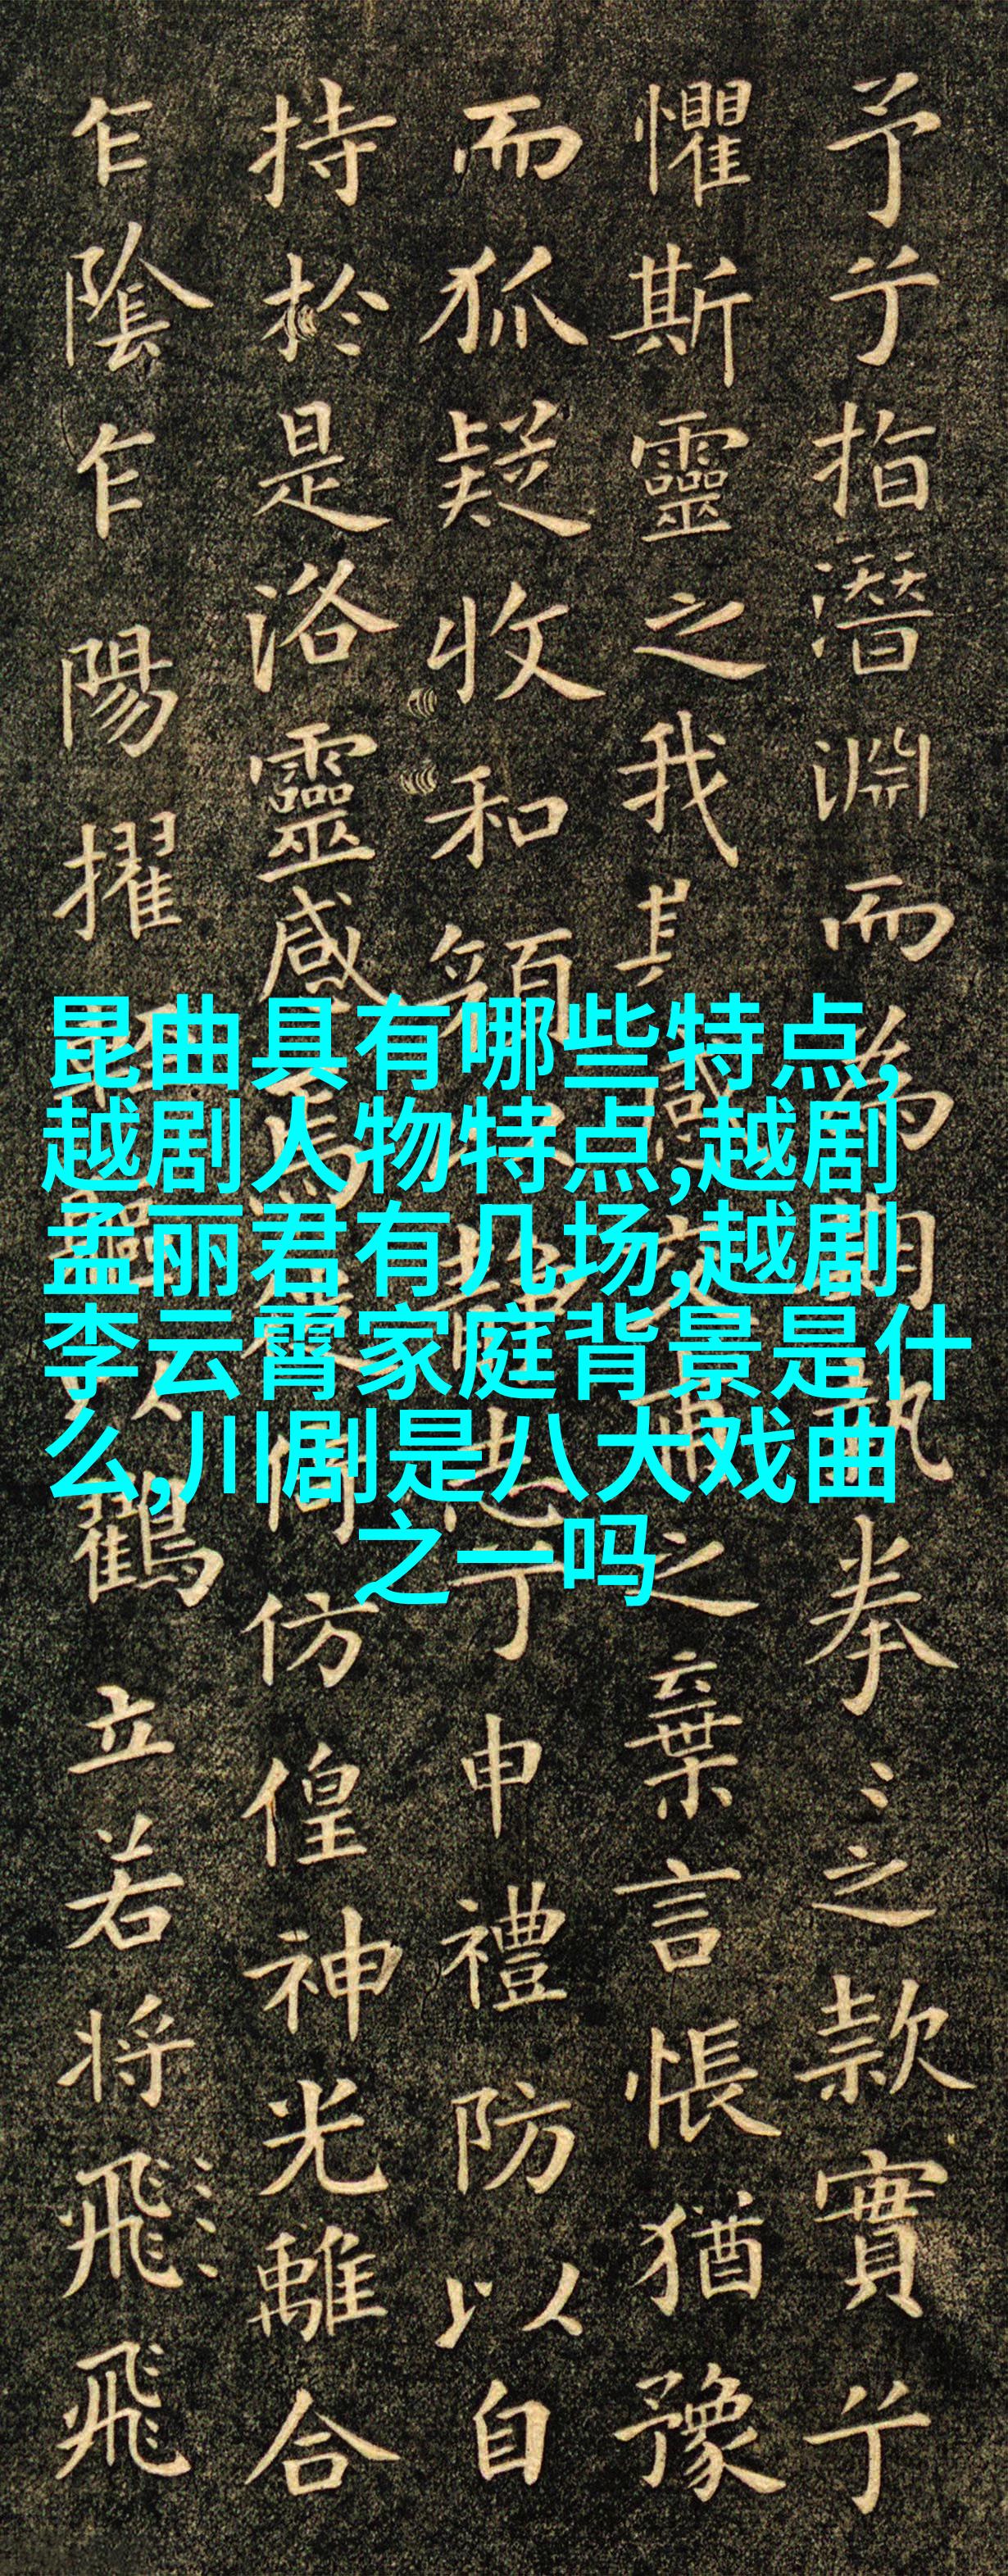 予兮指潛淵而為期執拳〻之款實兮
懼斯靈之我感交甫之棄言悵猶豫
而狐疑收和顏靜志兮申禮防以自
持於是洛靈感焉倚仿偟神光離合
乍陰乍陽擢以鶴立若將飛飛
昆曲具有哪些特点,
越剧人物特点,越剧
孟丽君有几场,越剧
李云霄家庭背景是什
么,川剧是八大戏曲
之一吗